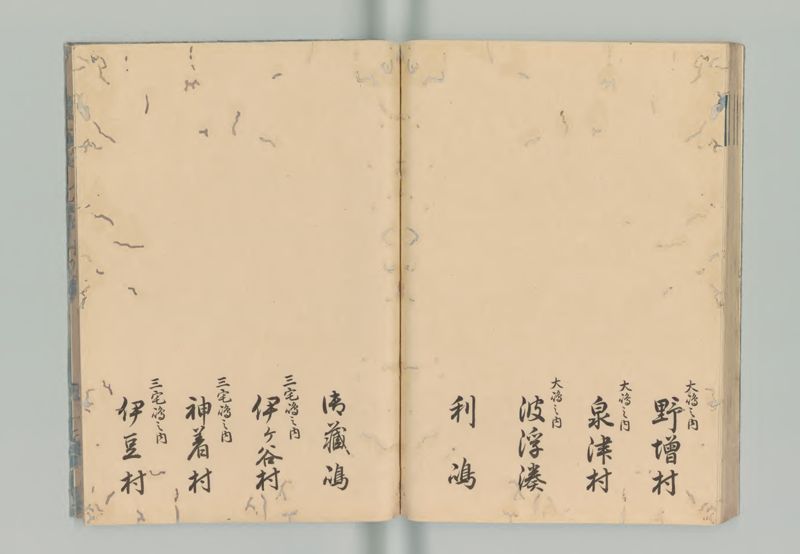 大嶋之内
野増村
大嶋之内
泉津村
大嶋之内
波浮湊
利嶋
御藏嶋
三宅嶋之内
伊ヶ谷村
三宅嶋之内
神着村
三宅嶋之内
伊豆村